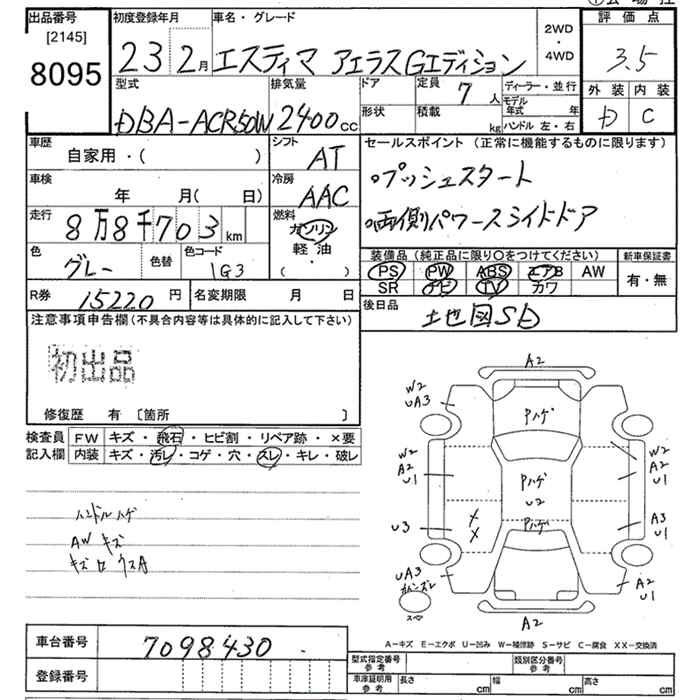 出品番号
[2145]
8095
初度登録年月
23 2月
車名・グレード
エスティマ アエラスGエディション
2WD
・
4WD
評価点
3.5
外装 内装
D C
型式
DBA-ACR50W
排気量
2400cc
ドア
形状
定員
7人
積載
kg
ディーラー・並行
モデル年式 年
ハンドル 左・右
車歴
自家用・( )
シフト
AT
セールスポイント (正常に機能するものに限ります)
・プッシュスタート
・両側パワースライドドア
車検
年 月( 日)
冷房
AAC
走行
8万8千703km
燃料
ガソリン
軽油
・
( )
色
グレー
色替
色コード
1G3
装備品 (純正品に限り○をつけてください)
新車保証書
PS PW ABS エアB AW
SR ナビ TV カワ
有・無
R券
15220円
名変期限 月 日
後日品
地図SD
注意事項申告欄 (不具合内容等は具体的に記入して下さい)
初出品
修復歴 有 〔箇所 〕
検査員記入欄
FW キズ・飛石・ヒビ割・リペア跡・×要
内装 キズ・汚レ・コゲ・穴・スレ・キレ・破レ
ハンドルハゲ
AW キズ
A2
W2
UA3
Pハゲ
W2
A2
U1
Pハゲ
U2
W2
A2
U1
U3
××
Pハゲ
A3
U1
UA3
ガバンズレ
スペア
A2
U1
A2
A-キズ E-エクボ U-凹み W-補修跡 S-サビ C-腐食 XX-交換済
車台番号
7098430
登録番号
型式指定番号参考
類別区分番号参考
車庫証明用参考
長さ cm 幅 cm 高さ cm